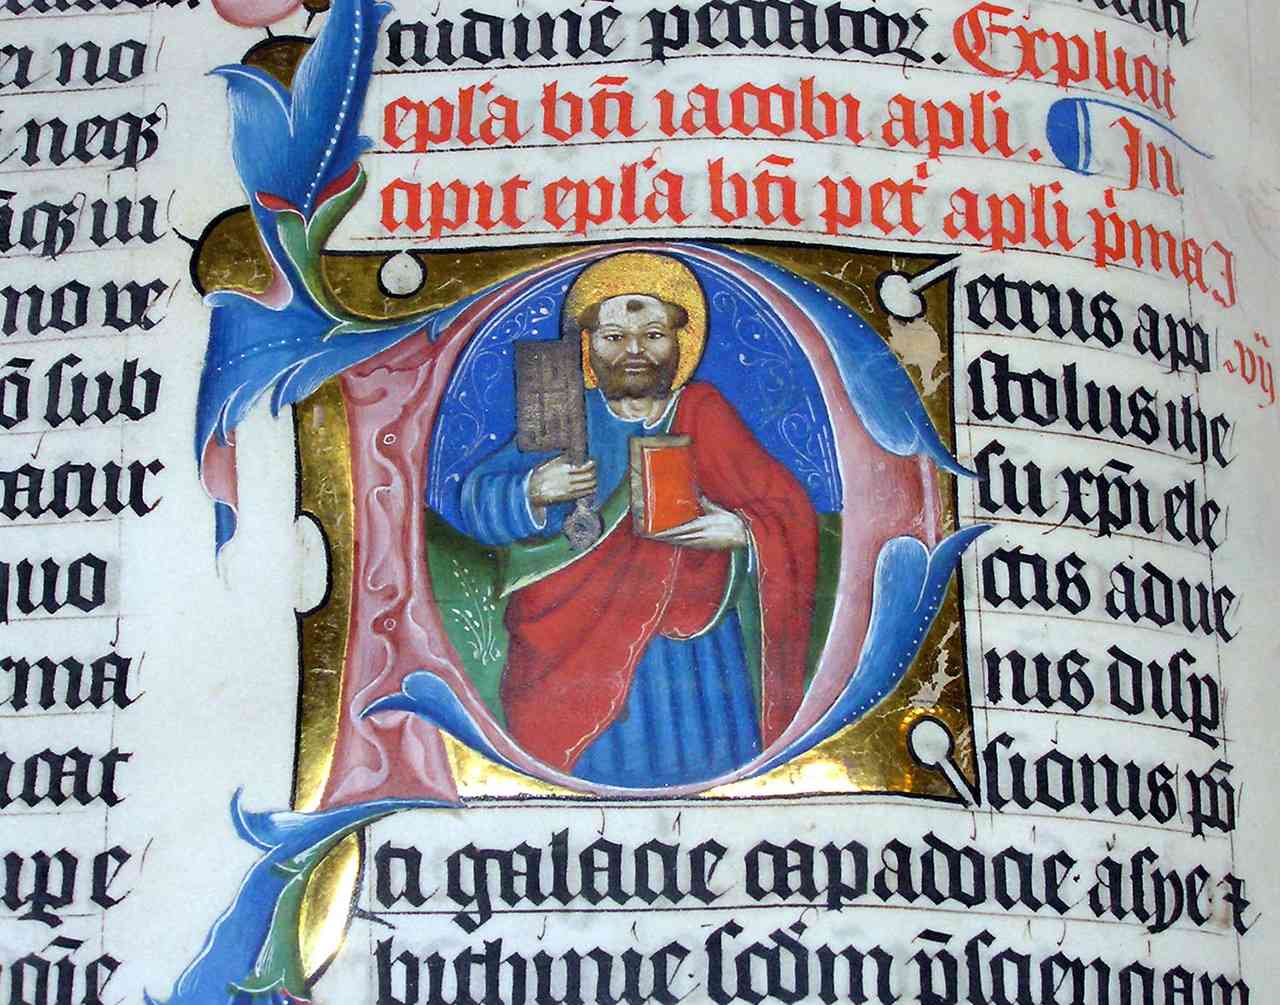 no
neqꝫ
sub
tatur
quo
rma
cat
tudinē peccator. Explicit
epl̄a bt̄i iacobi apli. In
cipit epl̄a bt̄i pet͛ apli p̍ma J
etrus apo
stolus ihe
su xp̄i ele
ctis adue
nis disp
sionis pō
ti galacie capadocie· asye ⁊
bithinie· scd̄m p̄scienciam
.vij